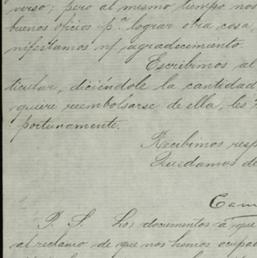 verso; pero al mismo tiempo nos
buenos oficios pª lograr otra cosa,
nifestamos n/ agradecimento.
Escribimos al
ticular, diciéndole la cantidad
quiere reembolsarse de ella, les
portunamente.
Recibimos resp
Quedamos de
Cam
P. S. Los documentos á que
al reclamo de que nos hemos ocupad